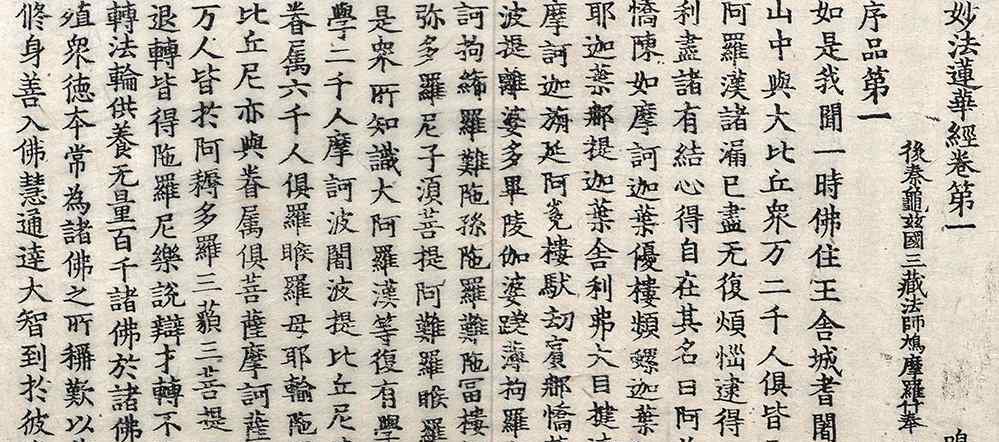 妙法蓮華經卷第一
後秦龜兹國三藏法師鳩摩羅什奉
序品第一
如是我聞一時佛住王舍城耆闍
山中與大比丘衆万二千人俱皆
阿羅漢諸漏已盡无復煩惱逮得
利盡諸有結心得自在其名曰阿
憍陳如摩訶迦葉優樓頻螺迦葉
耶迦葉那提迦葉舍利弗大目揵
摩訶迦旃延阿㝹樓馱劫賓那憍
波提離婆多畢陵伽婆蹉薄拘羅
訶拘絺羅難陁孫陁羅難陁冨樓
弥多羅尼子湏菩提阿難羅睺羅
是衆所知識大阿羅漢等復有學
學二千人摩訶波闍波提比丘尼
眷属六千人俱羅睺羅母耶輸陁
比丘尼亦與眷属俱菩薩摩訶薩
万人皆於阿耨多羅三藐三菩提
退轉皆得陁羅尼樂說辯才轉不
轉法輪供養无量百千諸佛於諸佛
殖衆徳夲常為諸佛之所稱歎以
修身善入佛慧通達大智到於彼